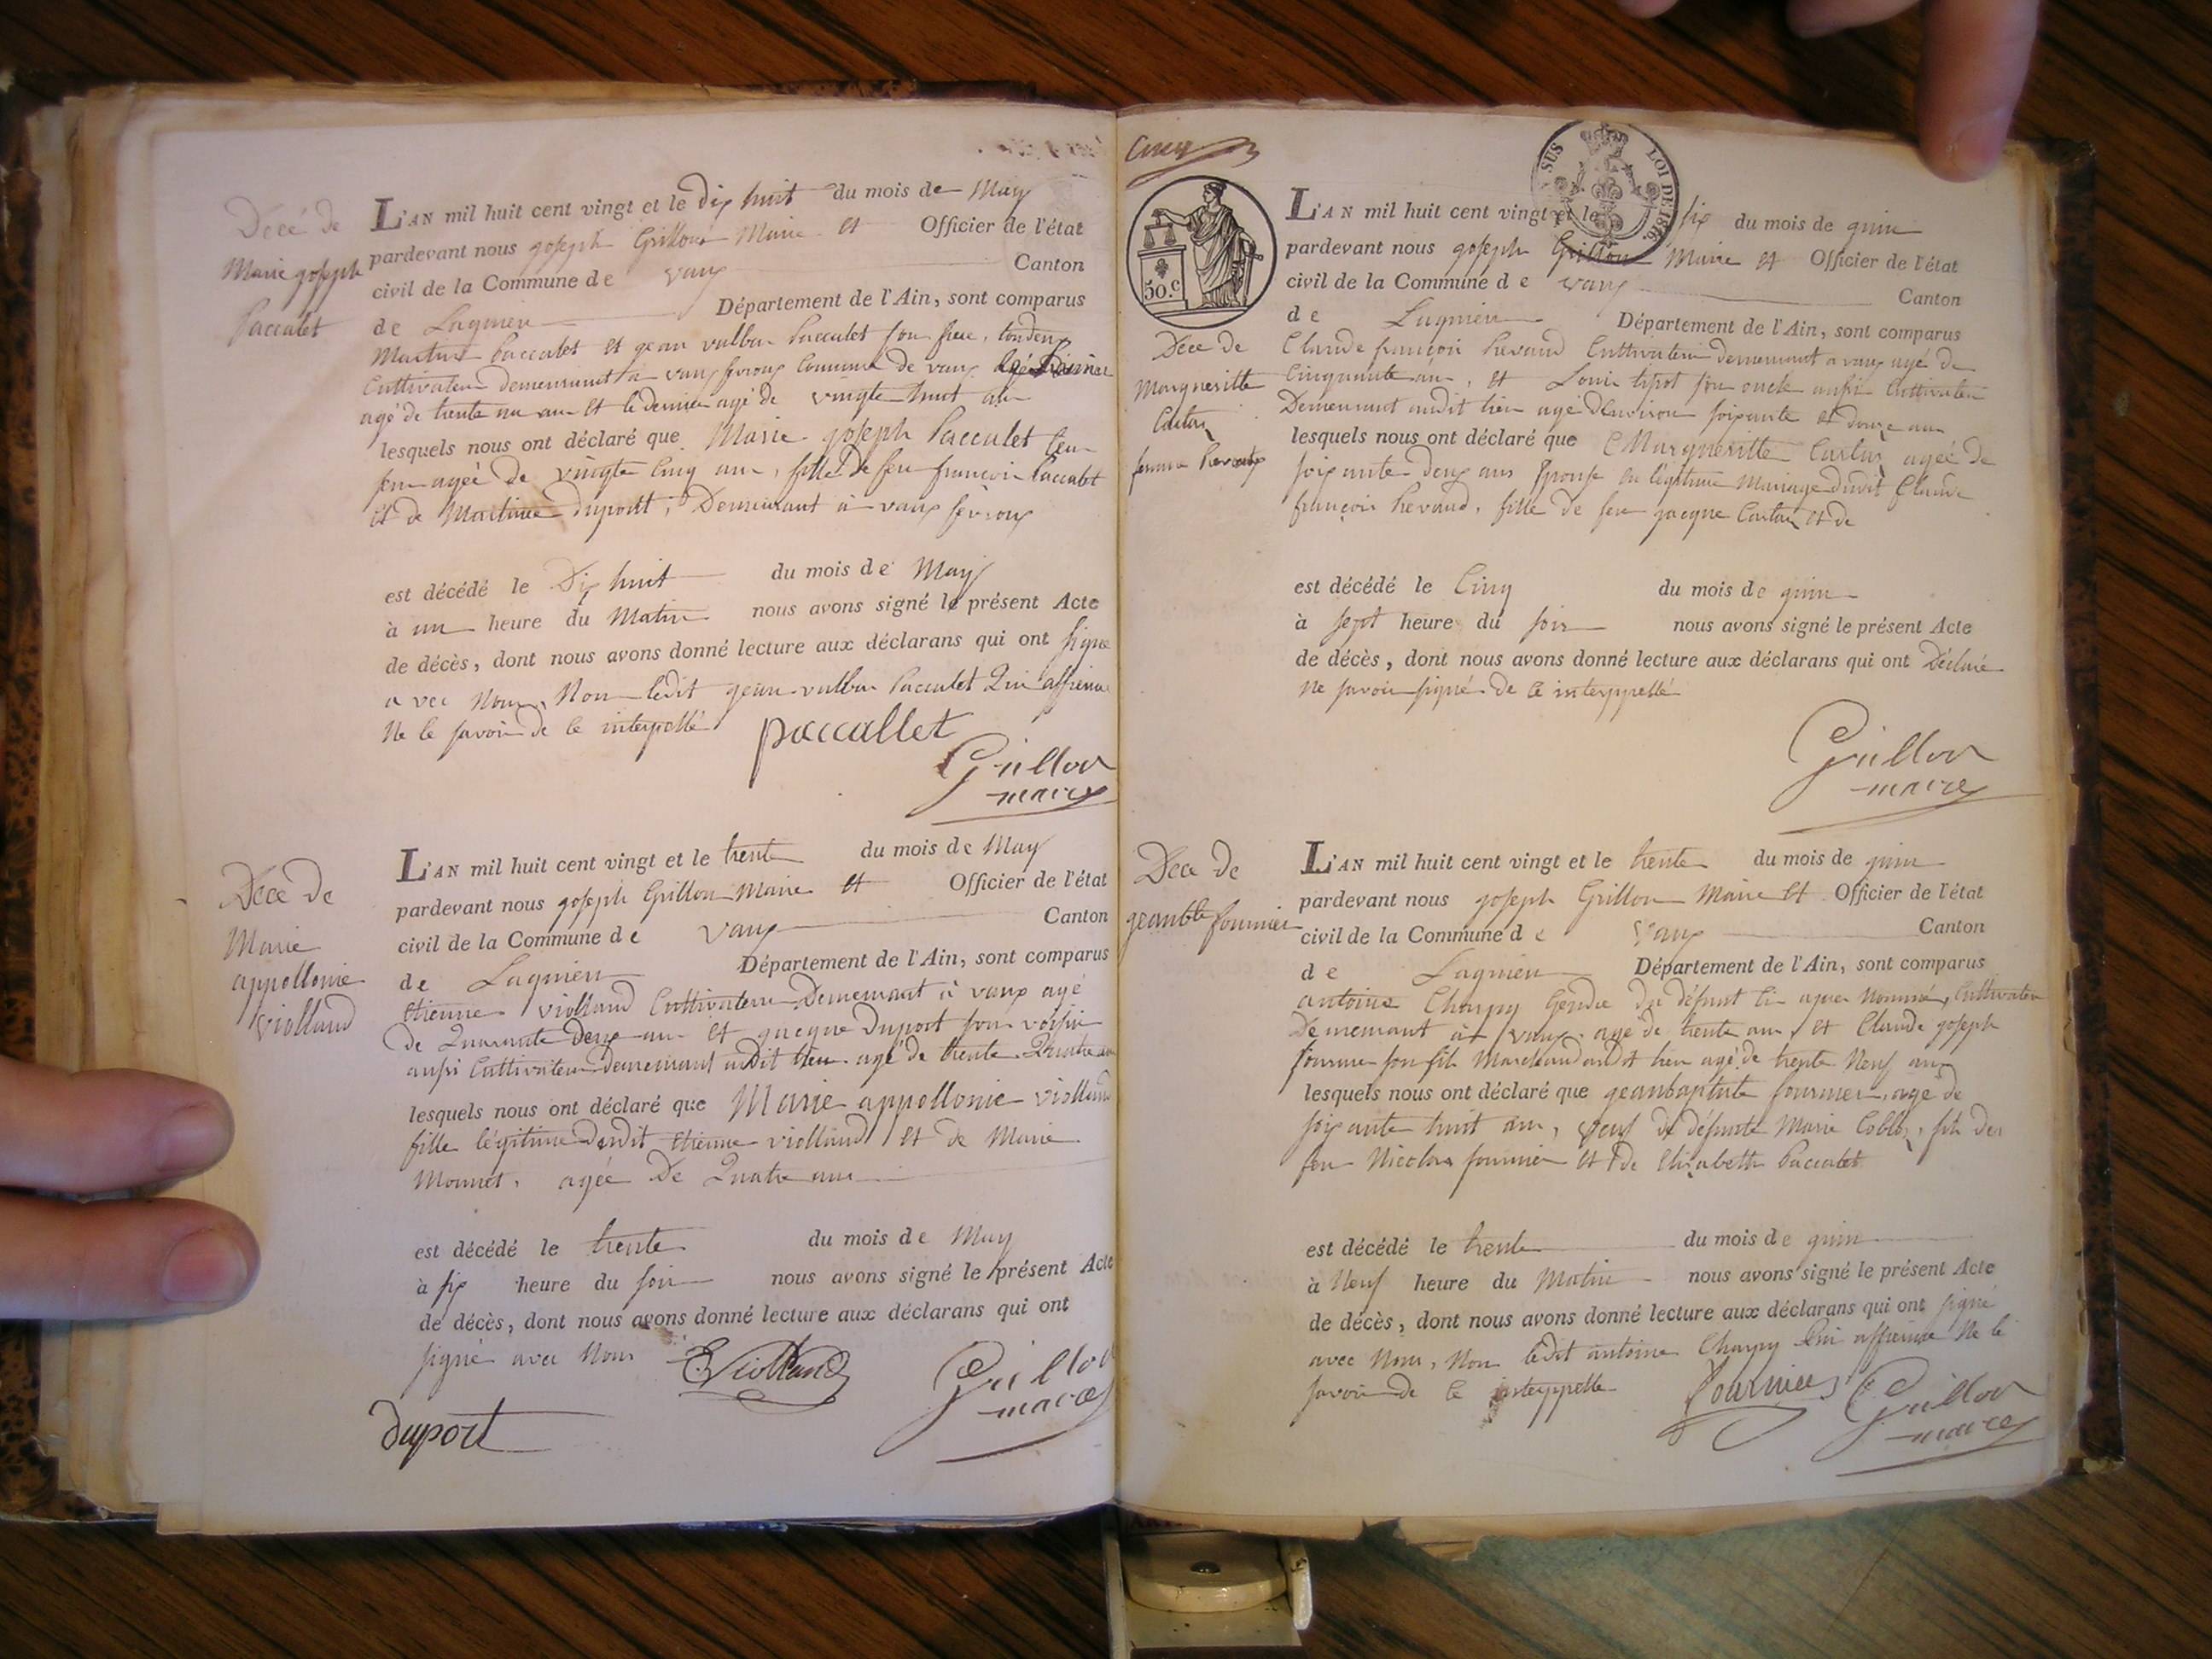 Décé de
Marie goseph
Paccalet
L'AN mil huit cent vingt et le dix huit du mois de May
pardevant nous goseph Grillon Maire et Officier de l'état
civil de la Commune de vaux Canton
de Lagnieu Département de l'Ain, sont comparus
Paccalet et gean vulba Paccalet son frere, tondeux
Cultivateur demeurant à vaux fevroux Commune de vaux
agé de trente un an et le dernier agé de vingte huit an
lesquels nous ont déclaré que Marie goseph Paccalet leur
seur agée de vingte Cinq ans, fille de feu françois Paccalet
et de Martine dupont, Demeurant à vaux fevroux
est décédé le Dix huit du mois de May
à un heure du Matin nous avons signé le présent Acte
de décès, dont nous avons donné lecture aux déclarans qui ont signé
avec Nous, Non ledit gean vulba Paccalet Qui affirme
Ne le savoir de ce interpellé
paccallet
Grillon
maire
Déce de
Marie
appollonie
violland
L'AN mil huit cent vingt et le trente du mois de May
pardevant nous goseph Grillon Maire et Officier de l'état
civil de la Commune de vaux Canton
de Lagnieu Département de l'Ain, sont comparus
etienne violland Cultivateur Demeurant à vaux agé
de Quarante deux an et gacque Duport son voisin
aussi Cultivateur demeurant audit lieu agé de trente Quatre an
lesquels nous ont déclaré que Marie appollonie violland
fille légitime dudit etienne violland et de Marie
Monnet, agée De Quatre ans
est décédé le trente du mois de May
à six heure du soir nous avons signé le présent Acte
de décès, dont nous avons donné lecture aux déclarans qui ont
signé avec Nous
E Violland
Grillon
maire
duport
Cinq
SUS LOI DE 1816.
50.c
Déce de
Margueritte
femme Revaux
L'AN mil huit cent vingt et le six du mois de guin
pardevant nous goseph Grillon Maire et Officier de l'état
civil de la Commune de vaux Canton
de Lagnieu Département de l'Ain, sont comparus
Claude françois Revaud Cultivateur demeurant a vaux agé de
Cinquante an, et Louis tipot son oncle aussi Cultivateur
Demeurant audit lieu agé d'environ soixante et douze an
lesquels nous ont déclaré que Margueritte agée de
soixante deux ans Epouse en légitime Mariage dudit Claude
françois Revaud, fille de feu gacque et de
est décédé le Cinq du mois de guin
à sept heure du soir nous avons signé le présent Acte
de décès, dont nous avons donné lecture aux déclarans qui ont Déclaré
Ne savoir signé de ce interppellé
Grillon
maire
Déce de
geanbte fournier
L'AN mil huit cent vingt et le trente du mois de guin
pardevant nous goseph Grillon Maire et Officier de l'état
civil de la Commune de Vaux Canton
de Lagnieu Département de l'Ain, sont comparus
antoine Charpy Gendre du défunt Ci apres Nommé, Cultivateur
Demeurant à vaux agé de trente an, et Claude goseph
fournier son fils Marchand audit lieu agé de trente Neuf ans
lesquels nous ont déclaré que geanbaptiste fournier, agé de
soixante huit ans, veuf de défunte Marie fils de
feu Nicolas fournier et de Elizabeth Paccalet
est décédé le trente du mois de guin
à Neuf heure du Matin nous avons signé le présent Acte
de décès, dont nous avons donné lecture aux déclarans qui ont signé
avec Nous, Non ledit antoine Charpy Qui affirme Ne le
savoir de ce interppellé
fournier
Grillon
maire